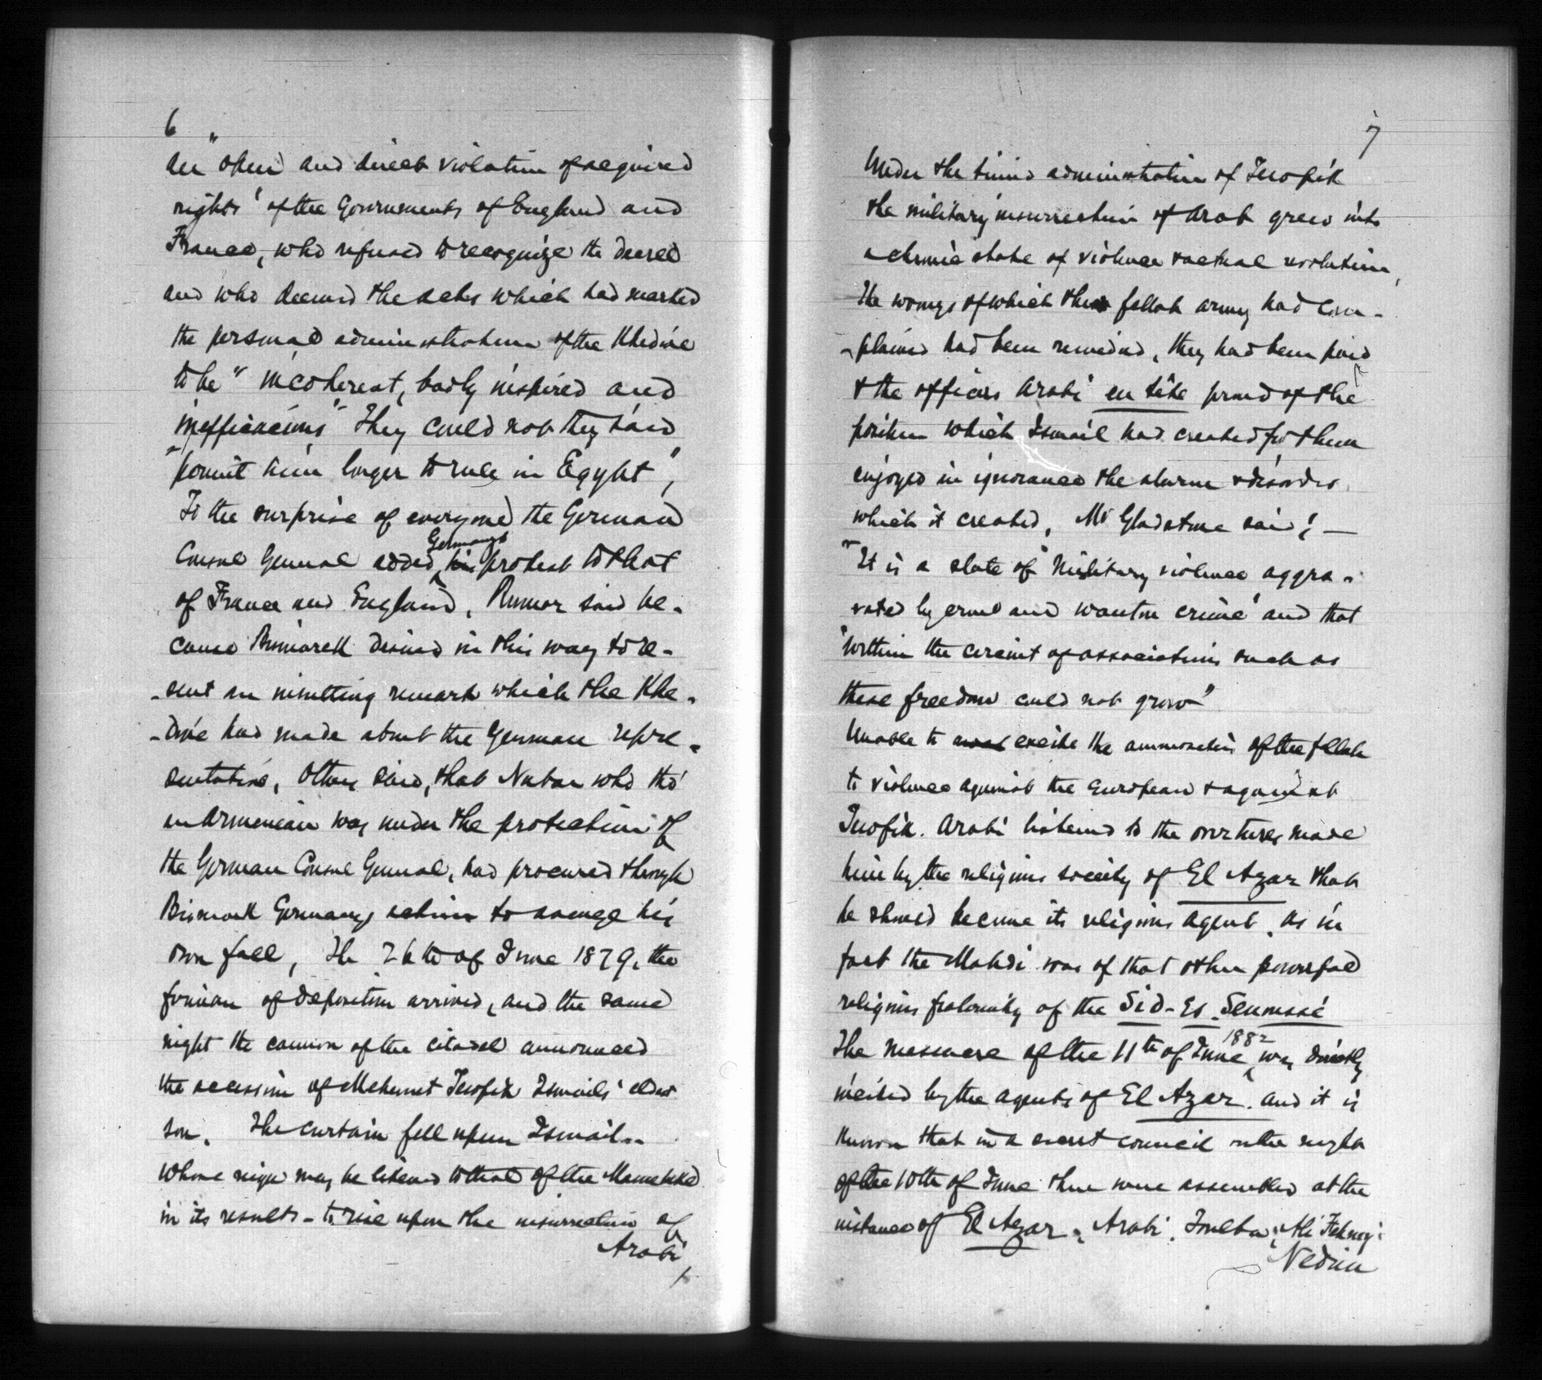 6
an "open and direct violation of acquired
rights" of the Governments of England and
France, who refused to recognize the decree
and who deemed the acts which had marked
the personal administration of the Khedive
to be "incoherent, badly inspired and
inefficacious" They could not they said
"permit him longer to rule in Egypt",
To the surprise of everyone the German
Consul General added Germany's protest to that
of France and England. Rumor said be-
cause Bismarck desired in this way to re-
-sent an insulting remark which the Khe-
-dive had made about the German repre-
sentative, Others said, that Nubar who tho'
an Armenian was under the protection of
the German Consul General, had procured through
Bismarck Germany's action to avenge his
own fall, The 26th of June 1879, the
firman of deposition arrived, and the same
night the cannon of the citadel announced
the accession of Mehemet Tewfik Ismail's eldest
son. The curtain fell upon Ismail..
whose reign may be likened to that of the Mamelukes
in its results - to rise upon the insurrection of
Arabi
7
Under the timid administration of Tewfik
the military insurrection of Arabi grew into
a chronic state of violence & actual revolution,
The wrongs of which the fellah army had com-
-plained had been remedied, they had been paid
& the officers Arabi en tête proud of the
position which Ismail had created for them
enjoyed in ignorance the alarm & disorder
which it created, Mr Gladstone said: —
"It is a state of military violence aggra-
vated by cruel and wanton crime" and that
"within the circuit of associations such as
these freedom could not grow"
Unable to excite the animosities of the fellah
to violence against the European & against
Tewfik. Arabi listened to the overtures made
him by the religious society of El Azar that
he should become its religious agent, as in
fact the Mahdi was of that other powerful
religious fraternity of the Sid-Es-Senoussé
The massacre of the 11th of June 1882 was directly
incited by the agents of El Azar. and it is
known that in a secret council on the night
of the 10th of June there were assembled at the
instance of El Azar, Arabi, Toulba, Ali Fehmy:
Nedim